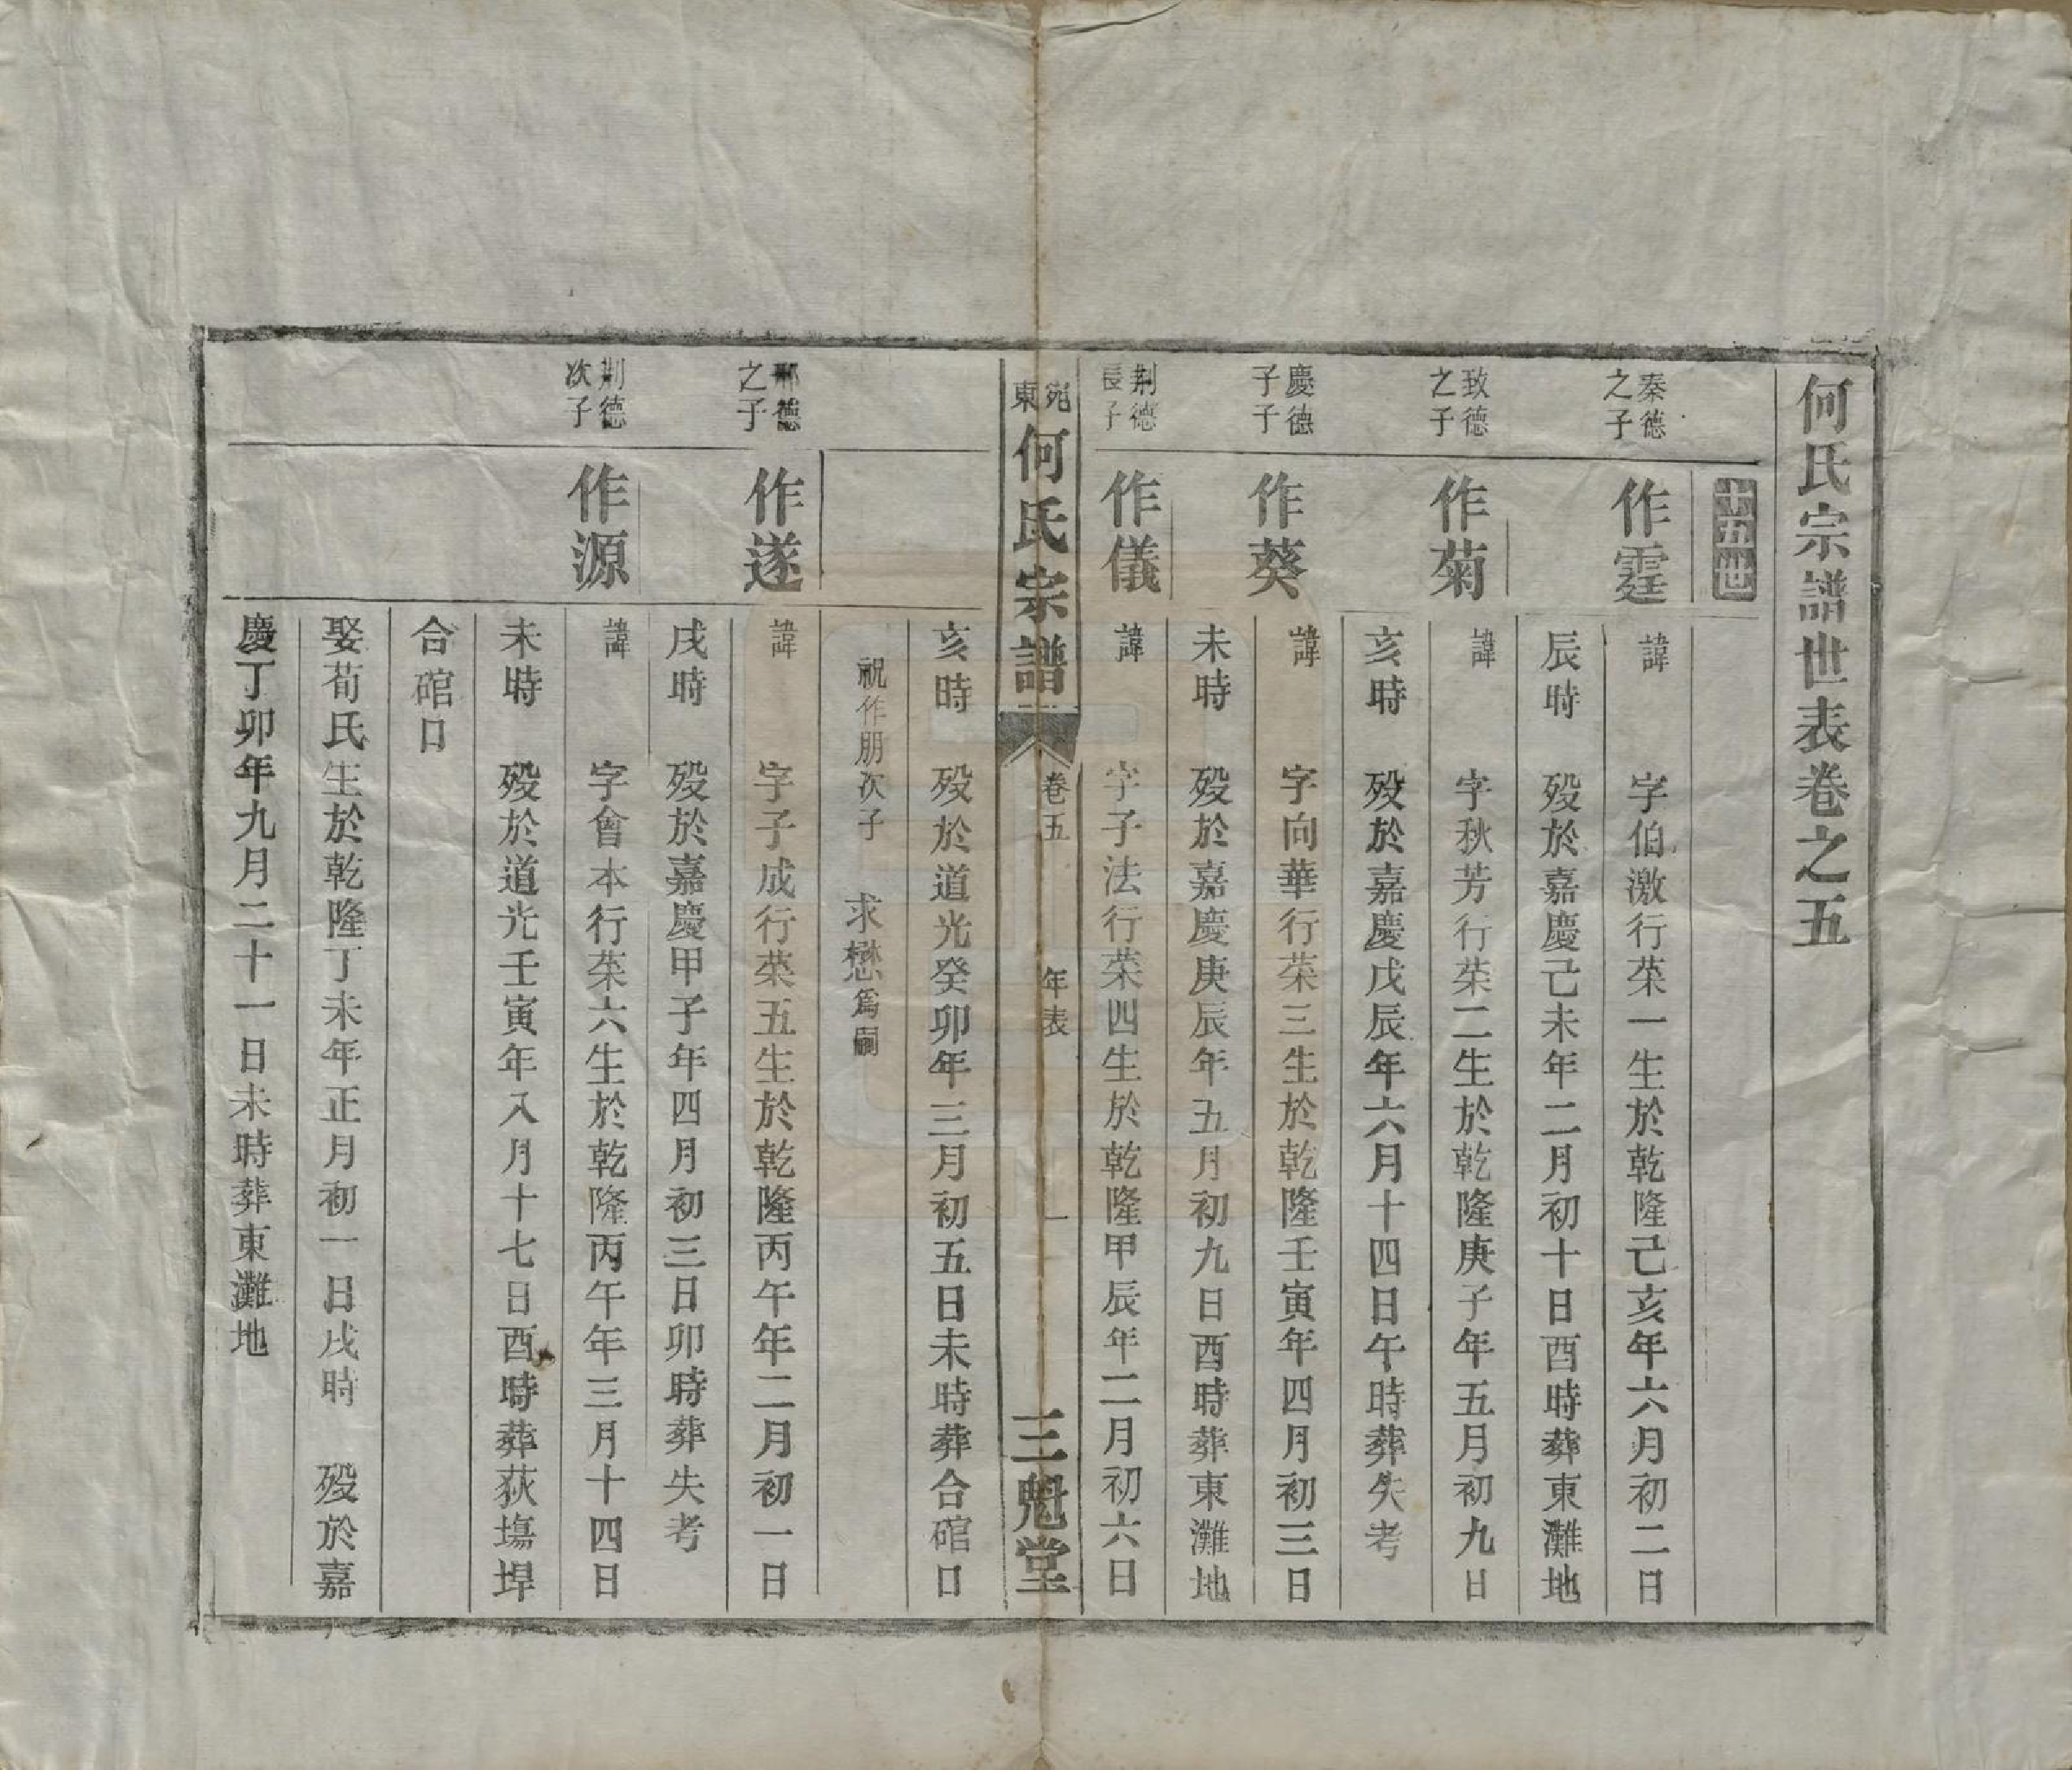 何氏宗譜世表卷之五
十五世
秦德
之子
作霆
諱 字伯激行荣一生於乾隆己亥年六月初二日
辰時 殁於嘉慶己未年二月初十日酉時葬東灘地
致德
之子
作菊
諱 字秋芳行荣二生於乾隆庚子年五月初九日
亥時 殁於嘉慶戊辰年六月十四日午時葬失考
慶德
子子
作葵
諱 字向華行荣三生於乾隆壬寅年四月初三日
未時 殁於嘉慶庚辰年五月初九日酉時葬東灘地
荆德
長子
作儀
諱 字子法行荣四生於乾隆甲辰年二月初六日
宛東何氏宗譜 卷五 年表 一 三魁堂
亥時 殁於道光癸卯年三月初五日未時葬合碹口
祝作朋次子 求懋為嗣
德
之子
作遂
諱 字子成行荣五生於乾隆丙午年二月初一日
戌時 殁於嘉慶甲子年四月初三日卯時葬失考
荆德
次子
作源
諱 字會本行荣六生於乾隆丙午年三月十四日
未時 殁於道光壬寅年八月十七日酉時葬荻塲埠
合碹口
娶荀氏生於乾隆丁未年正月初一日戌時 殁於嘉
慶丁卯年九月二十一日未時葬東灘地